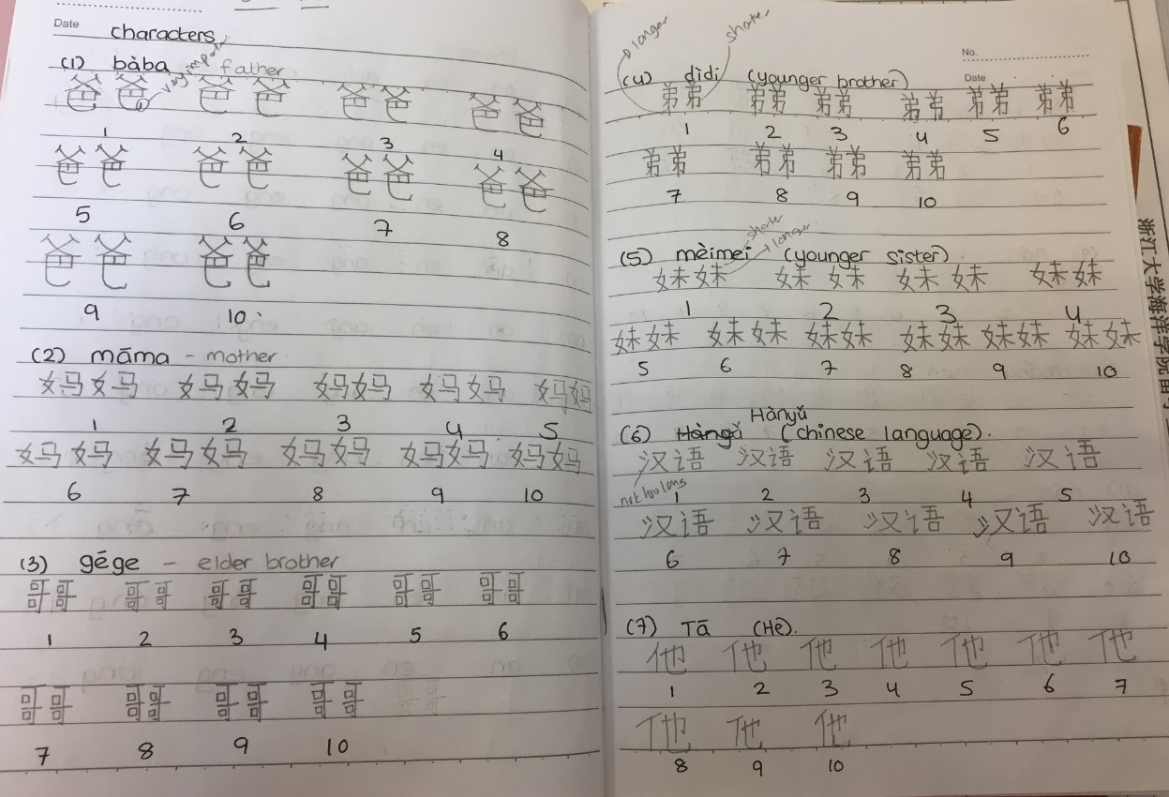 Date
characters
(1) bàba father
爸爸 爸爸 爸爸 爸爸
1 2 3 4
爸爸 爸爸 爸爸 爸爸
5 6 7 8
爸爸 爸爸
9 10
(2) māma - mother
妈妈 妈妈 妈妈 妈妈 妈妈
1 2 3 4 5
妈妈 妈妈 妈妈 妈妈 妈妈
6 7 8 9 10
(3) gēge - elder brother
哥哥 哥哥 哥哥 哥哥 哥哥 哥哥
1 2 3 4 5 6
哥哥 哥哥 哥哥 哥哥
7 8 9 10
longer
shoter
No.
Date
(4) dìdi (younger brother)
弟弟 弟弟 弟弟 弟弟 弟弟 弟弟
1 2 3 4 5 6
弟弟 弟弟 弟弟 弟弟
7 8 9 10
shoter
longer
(5) mèimei (younger sister)
妹妹 妹妹 妹妹 妹妹
1 2 3 4
妹妹 妹妹 妹妹 妹妹 妹妹 妹妹
5 6 7 8 9 10
Hànyǔ
(6) (chinese language).
汉语 汉语 汉语 汉语 汉语
not too long
1 2 3 4 5
汉语 汉语 汉语 汉语 汉语
6 7 8 9 10
(7) Tā (He).
他 他 他 他 他 他 他
1 2 3 4 5 6 7
他 他 他
8 9 10
浙江大学海洋学院